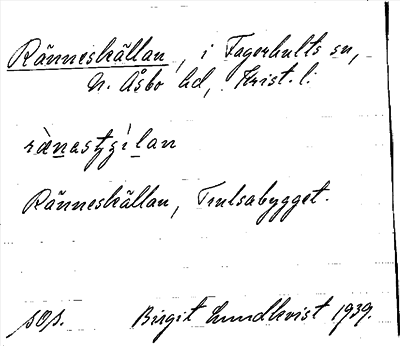 Ränneskällan, i Fagerhults sn,
N. Åsbo hd, Krist. l.
Ränneskällan, Trulsabygget.
sop. Birgit Lundkvist 1939.